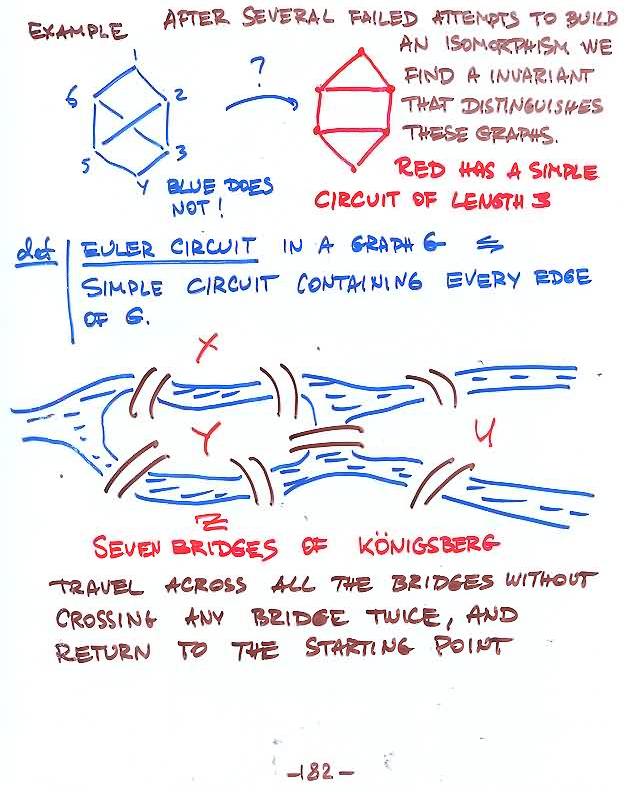 EXAMPLE AFTER SEVERAL FAILED ATTEMPTS TO BUILD
AN ISOMORPHISM WE
FIND A INVARIANT
THAT DISTINGUISHES
THESE GRAPHS.
1
6 2
?
5 3
4
BLUE DOES
NOT!
RED HAS A SIMPLE
CIRCUIT OF LENGTH 3
def EULER CIRCUIT IN A GRAPH G ⇆
SIMPLE CIRCUIT CONTAINING EVERY EDGE
OF G.
X
Y U
Z
SEVEN BRIDGES OF KÖNIGSBERG
TRAVEL ACROSS ALL THE BRIDGES WITHOUT
CROSSING ANY BRIDGE TWICE, AND
RETURN TO THE STARTING POINT
-182-